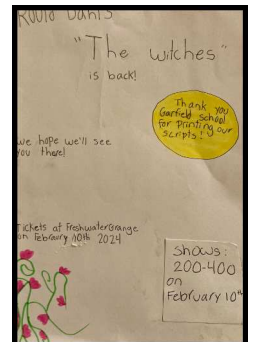 Roald Dahl's
"The witches"
is back!
Thank you
Garfield school
for printing our
scripts!
we hope we'll see
you there!
Tickets at FreshwaterGrange
on February 10th 2024
shows:
200-400
on
February 10th